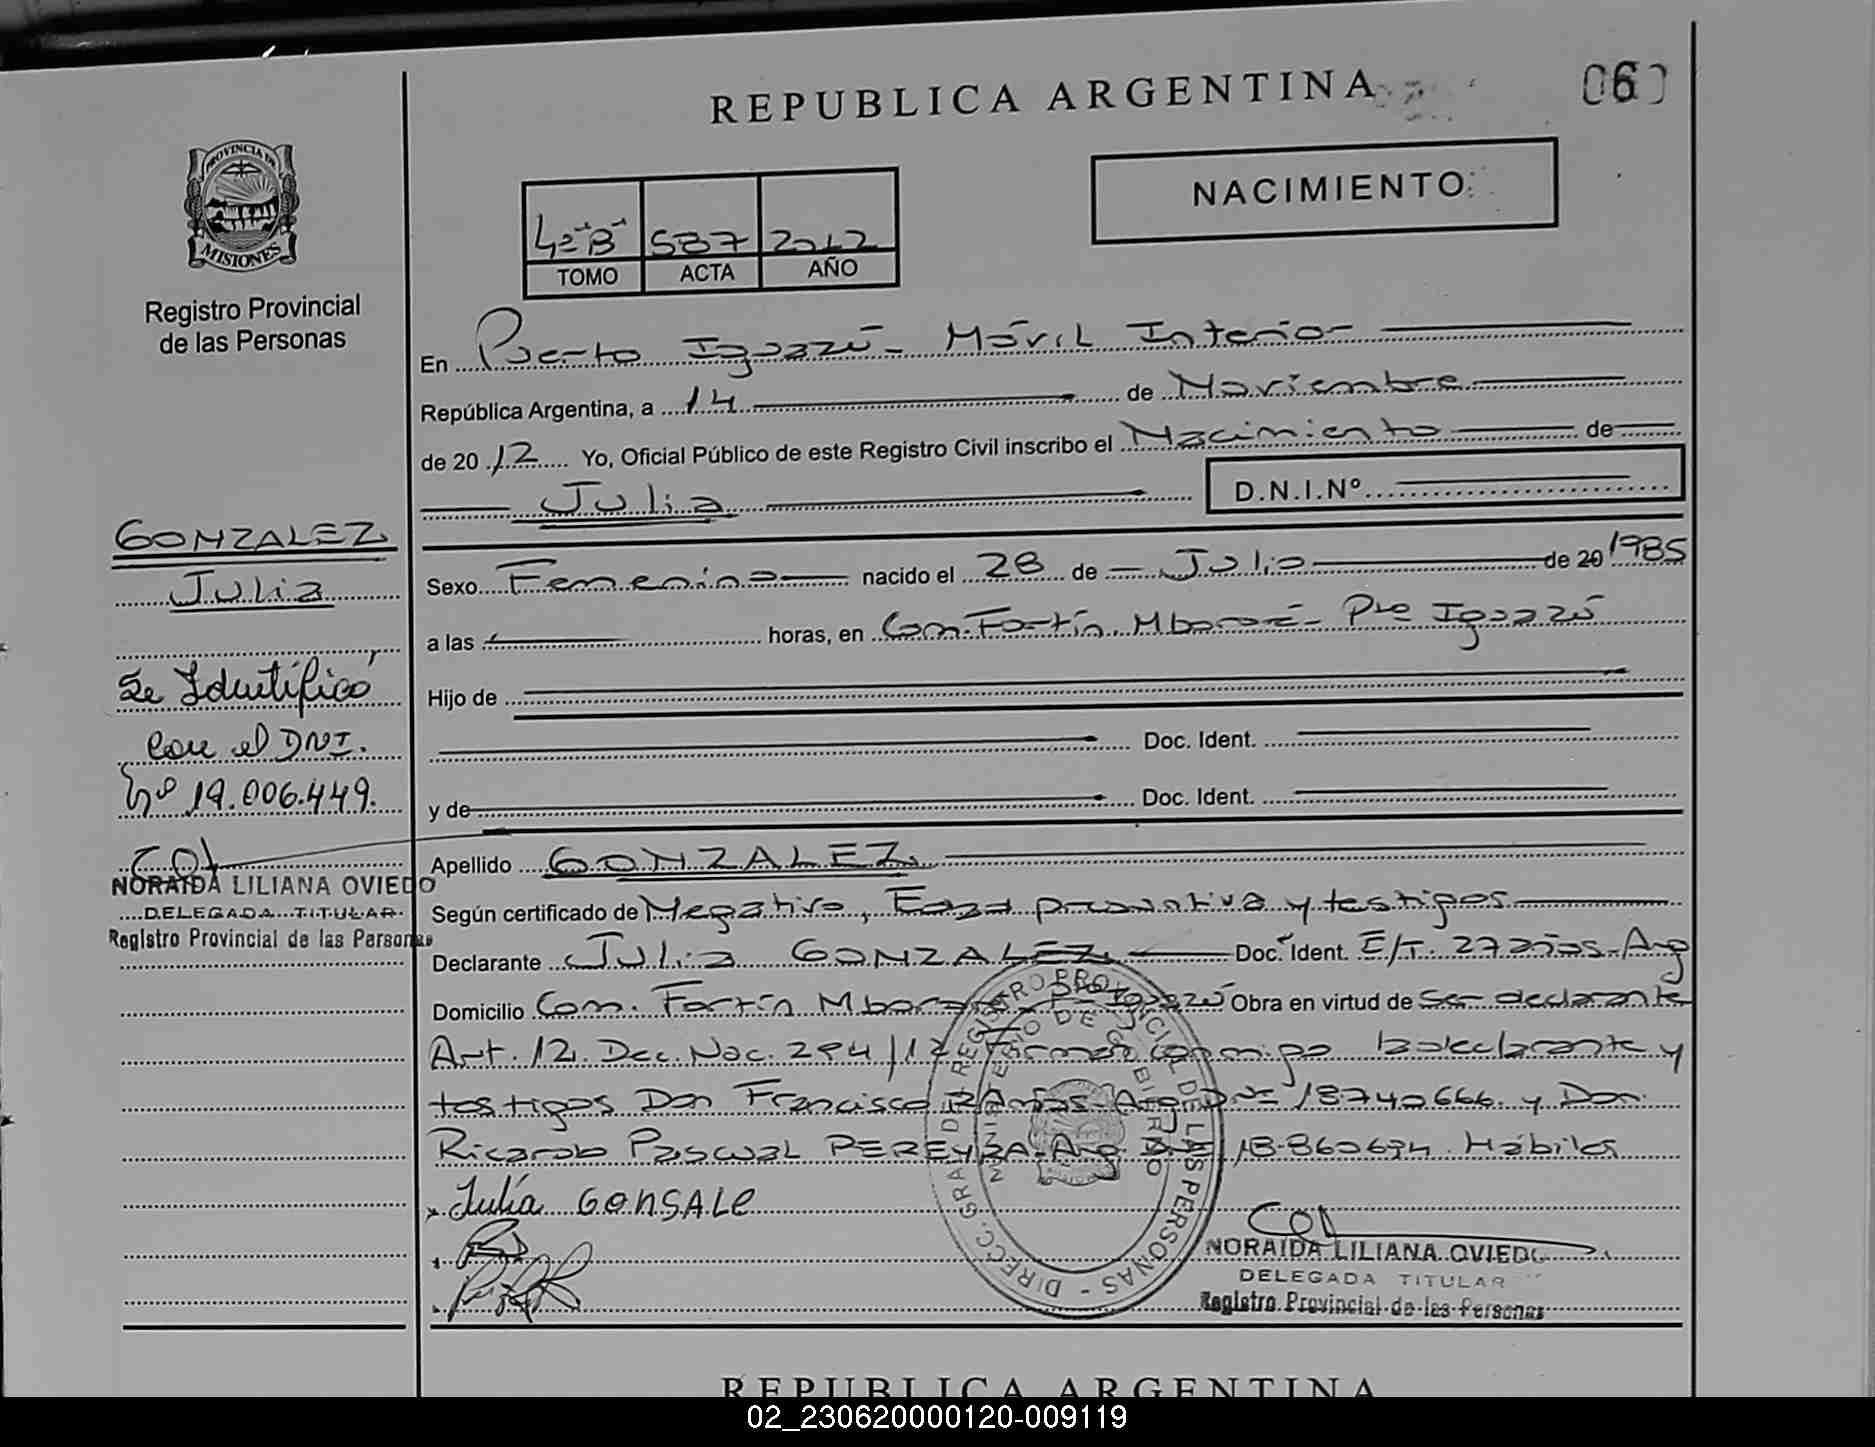 REPUBLICA ARGENTINA
060
PROVINCIA DE
MISIONES
Registro Provincial
de las Personas
NACIMIENTO
4º "B" 587 2012
TOMO ACTA AÑO
En Puerto Iguazú - Móvil Interior
República Argentina, a 14 de Noviembre
de 20 12 Yo, Oficial Público de este Registro Civil inscribo el Nacimiento de
Julia D.N.I.Nº
GONZALEZ
Julia
Se Identificó
con el DNI.
Nº 19.006.449.
NORAIDA LILIANA OVIEDO
DELEGADA TITULAR
Registro Provincial de las Personas
Sexo Femenino nacido el 28 de Julio de 20 1985
a las horas, en Com. Fortín Mbororé - Pto Iguazú
Hijo de
Doc. Ident.
y de Doc. Ident.
Apellido GONZALEZ
Según certificado de Negativo, Edad presuntiva y testigos
Declarante Julia GONZALEZ Doc. Ident. E/T. 27 años - Arg
Domicilio Com. Fortín Mbororé - Pto Iguazú Obra en virtud de Ser declarante
Art. 12. Dec. Nac. 294/12 Firman conmigo la declarante y
testigos Don Francisco RAMOS - Arg. DNI 18740666 y Don
Ricardo Pascual PEREYRA - Arg. DNI 18.860694 Hábiles
Julía GONSALE
DIRECC. GRAL. DE REGISTRO PROVINCIAL DE LAS PERSONAS
MINISTERIO DE GOBIERNO
NORAIDA LILIANA OVIEDO
DELEGADA TITULAR
Registro Provincial de las Personas
REPUBLICA ARGENTINA
02_230620000120-009119